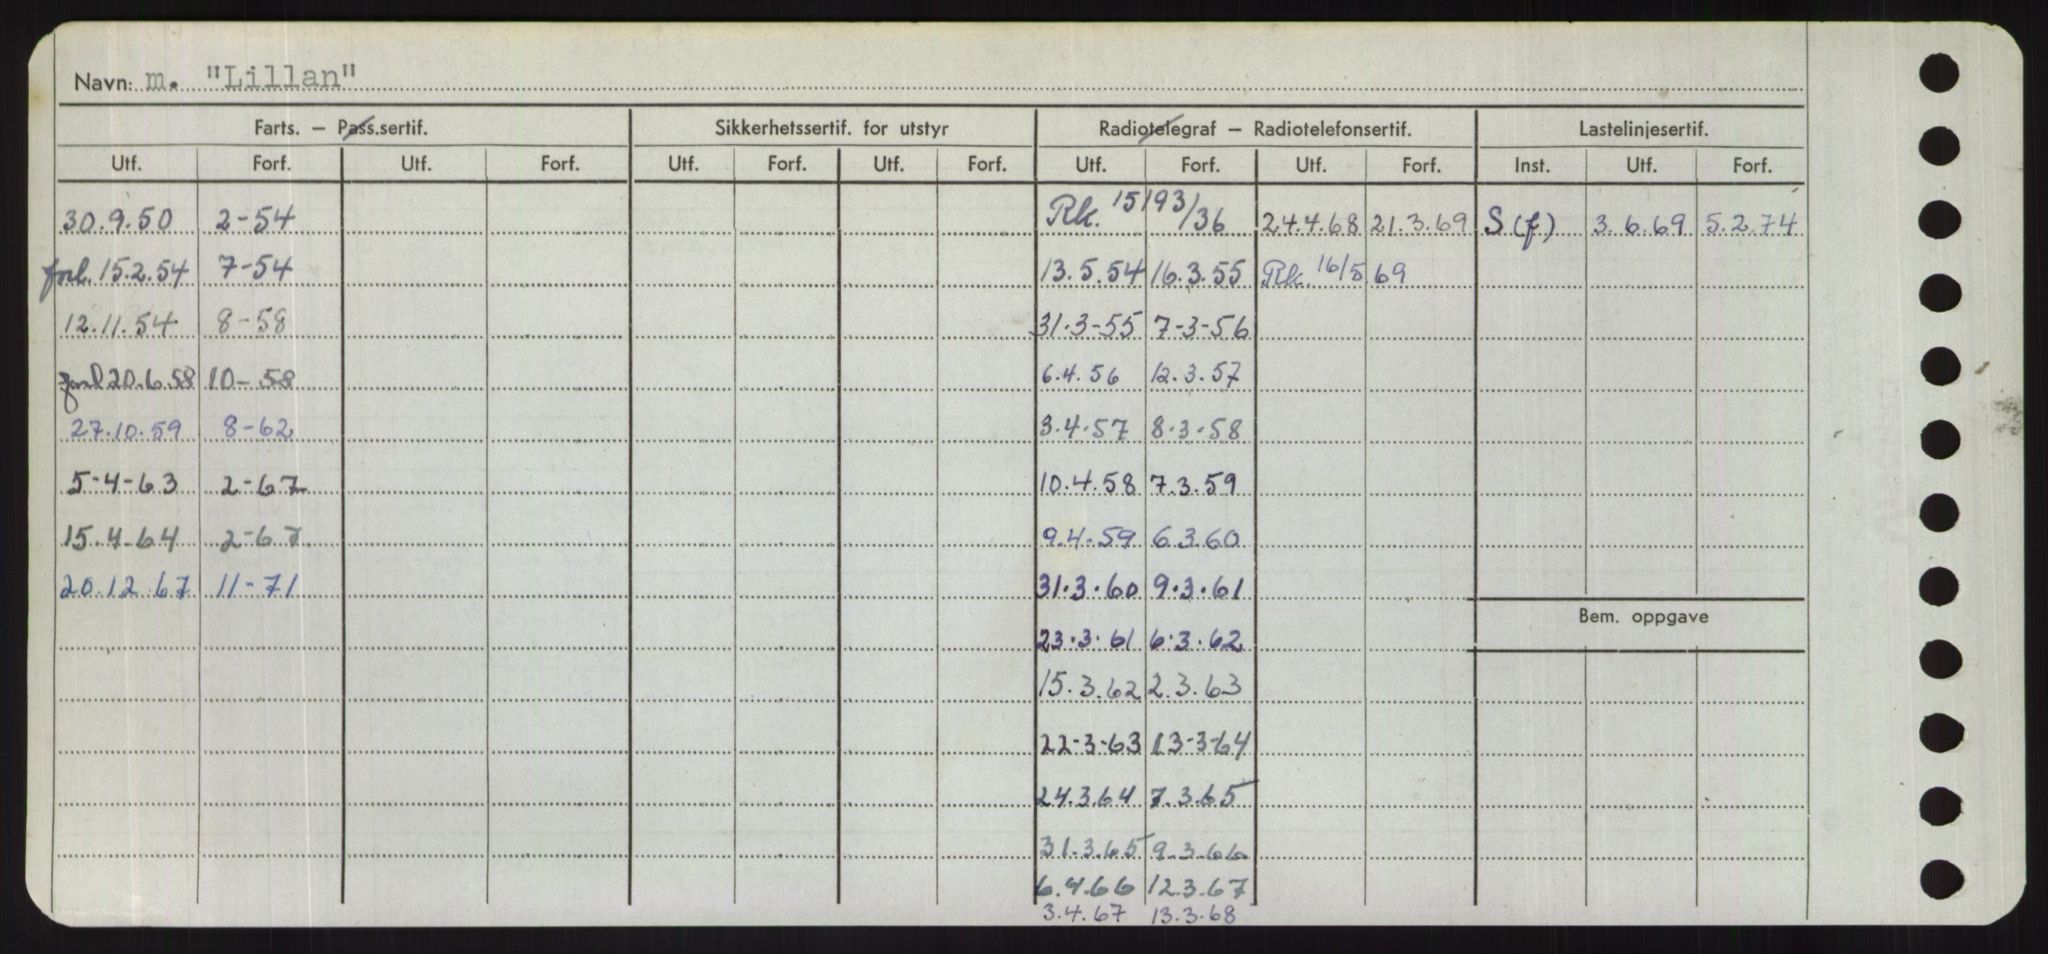 Navn: m. "Lillan"
Farts. – Pass.sertif. Sikkerhetssertif. for utstyr Radiotelegraf – Radiotelefonsertif. Lastelinjesertif.
Utf. Forf. Utf. Forf. Utf. Forf. Utf. Forf. Utf. Forf. Utf. Forf. Inst. Utf. Forf.
30.9.50 2-54 Rk. 15193/36 24.4.68 21.3.69 S (f) 3.6.69 5.2.74
forl. 15.2.54 7-54 13.5.54 16.3.55 Rk. 16/5.69
12.11.54 8-58 31.3-55 7-3-56
forl 20.6.58 10-58 6.4.56 12.3.57
27.10.59 8-62 3.4.57 8.3.58
5-4-63 2-67 10.4.58 7.3.59
15.4.64 2-67 9.4.59 6.3.60
20.12.67 11-71 31.3.60 9.3.61
Bem. oppgave
23.3.61 6.3.62
15.3.62 2.3.63
22-3-63 13-3-64
24.3.64 7.3.65
31.3.65 9.3.66
6.4.66 12.3.67
3.4.67 13.3.68